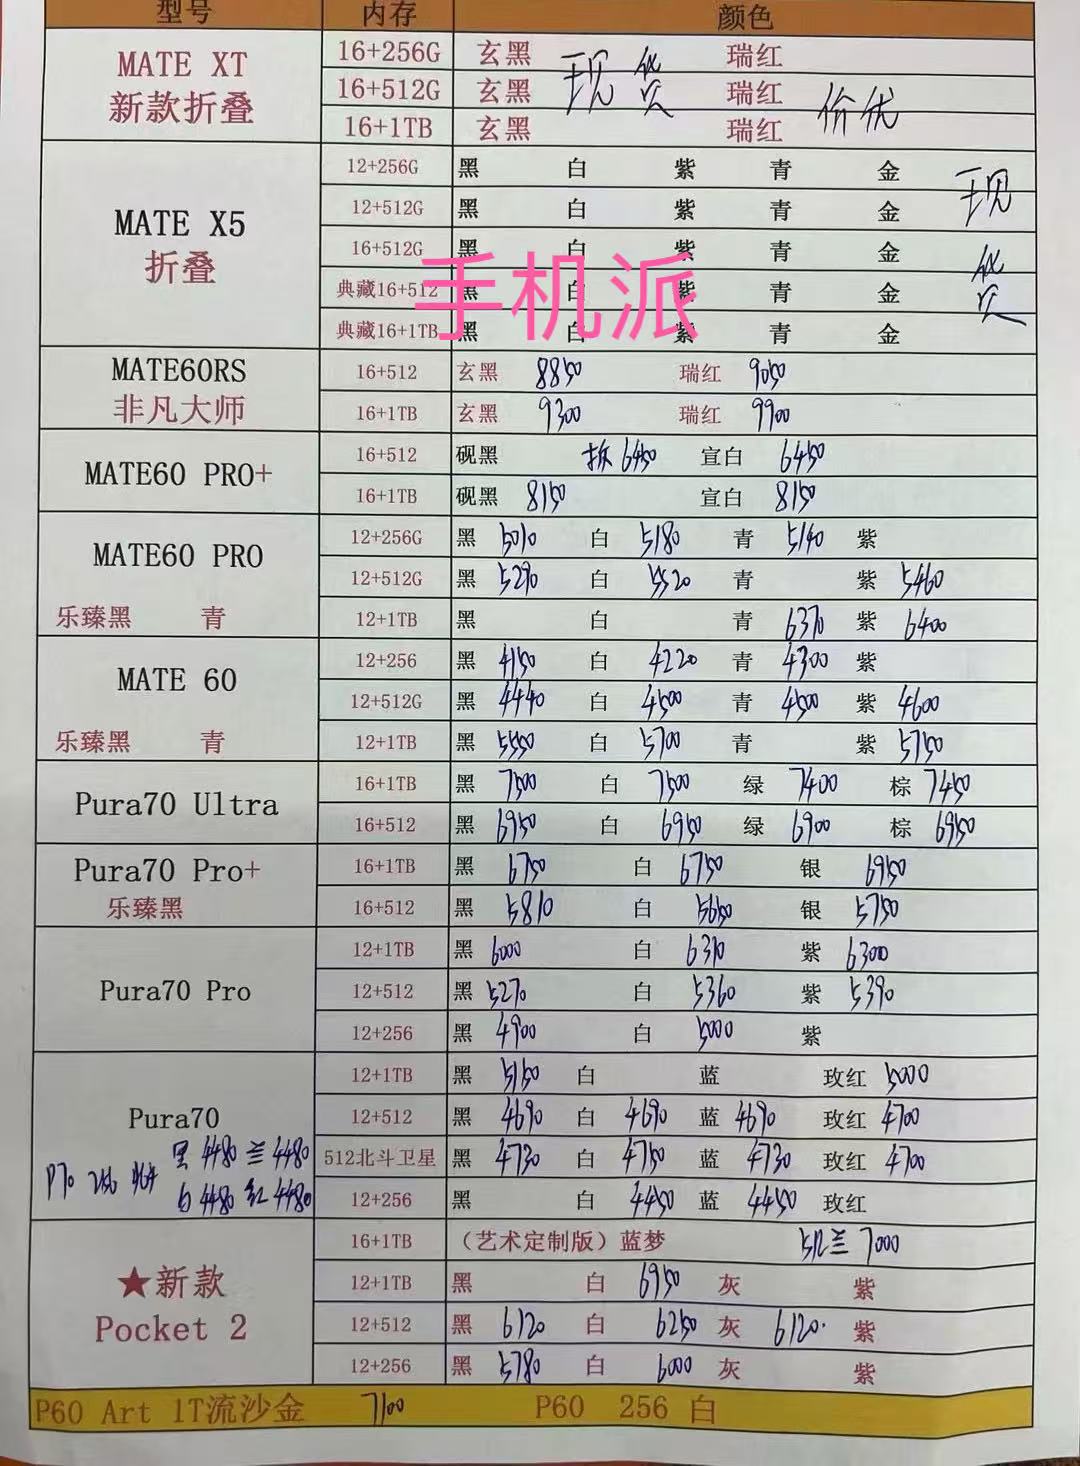 型号 内存 颜色
16+256G 玄黑 瑞红
MATE XT 16+512G 玄黑 现货 瑞红 价优
新款折叠 16+1TB 玄黑 瑞红
12+256G 黑 白 紫 青 金
12+512G 黑 白 紫 青 金 现货
MATE X5 16+512G 黑 白 紫 青 金
折叠 典藏16+512 黑 白 紫 青 金
手机派
典藏16+1TB 黑 白 紫 青 金
MATE60RS 16+512 玄黑 8850 瑞红 9050
非凡大师 16+1TB 玄黑 9300 瑞红 9900
MATE60 PRO+ 16+512 砚黑 拆6450 宣白 6450
16+1TB 砚黑 8150 宣白 8150
MATE60 PRO 12+256G 黑 5010 白 5180 青 5140 紫
12+512G 黑 5290 白 5520 青 紫 5460
乐臻黑 青 12+1TB 黑 白 青 6370 紫 6400
MATE 60 12+256 黑 4150 白 4220 青 4300 紫
12+512G 黑 4440 白 4500 青 4500 紫 4600
乐臻黑 青 12+1TB 黑 5550 白 5700 青 紫 5750
Pura70 Ultra 16+1TB 黑 7500 白 7500 绿 7400 棕 7450
16+512 黑 6950 白 6950 绿 6900 棕 6950
Pura70 Pro+ 16+1TB 黑 6750 白 6750 银 6950
乐臻黑 16+512 黑 5810 白 5650 银 5750
12+1TB 黑 6000 白 6310 紫 6300
Pura70 Pro 12+512 黑 5270 白 5360 紫 5390
12+256 黑 4900 白 5000 紫
12+1TB 黑 5150 白 蓝 玫红 5000
Pura70 12+512 黑 4690 白 4690 蓝 4690 玫红 4700
P70 256 黑 4480 兰 4480 512北斗卫星 黑 4730 白 4750 蓝 4730 玫红 4700
白 4480 红 4480 12+256 黑 白 4450 蓝 4450 玫红
16+1TB （艺术定制版）蓝梦 512兰 7000
★新款 12+1TB 黑 白 6950 灰 紫
Pocket 2 12+512 黑 6120 白 6250 灰 6120. 紫
12+256 黑 5780 白 6000 灰 紫
P60 Art 1T流沙金 7100 P60 256 白